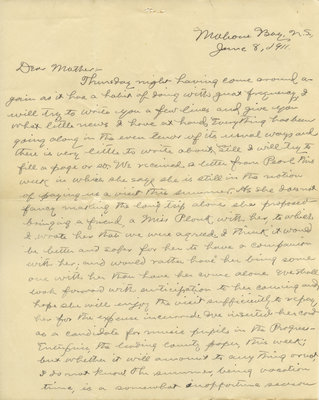 Mahone Bay, N.S.
June 8, 1911.
Dear Mother:-
Thursday night having come around a-
gain as it has a habit of doing with great frequency I
will try to write you a few lines and give you
what little news I have at hand. Everything has been
going along in the even tenor of its usual ways and
there is very little to write about. Still I will try to
fill a page or so. We received a letter from Pearl this
week in which she says she is still in the notion
of paying us a visit this summer. As she does not
fancy making the long trip alone she proposes
bringing a friend, a Miss with her, to which
I wrote her that we were agreed. I think it would
be better and safer for her to have a companion
with her, and would rather have her bring some
one with her than have her come alone. We shall
look forward with anticipation to her coming and
hope she will enjoy the visit sufficiently to repay
her for the expense incurred. We inserted her card
as a candidate for music pupils in the Progress-
Enterprise, the leading county paper, this week;
but whether it will amount to anything or not,
I do not know. The summer, being vacation
time, is a somewhat inopportune season